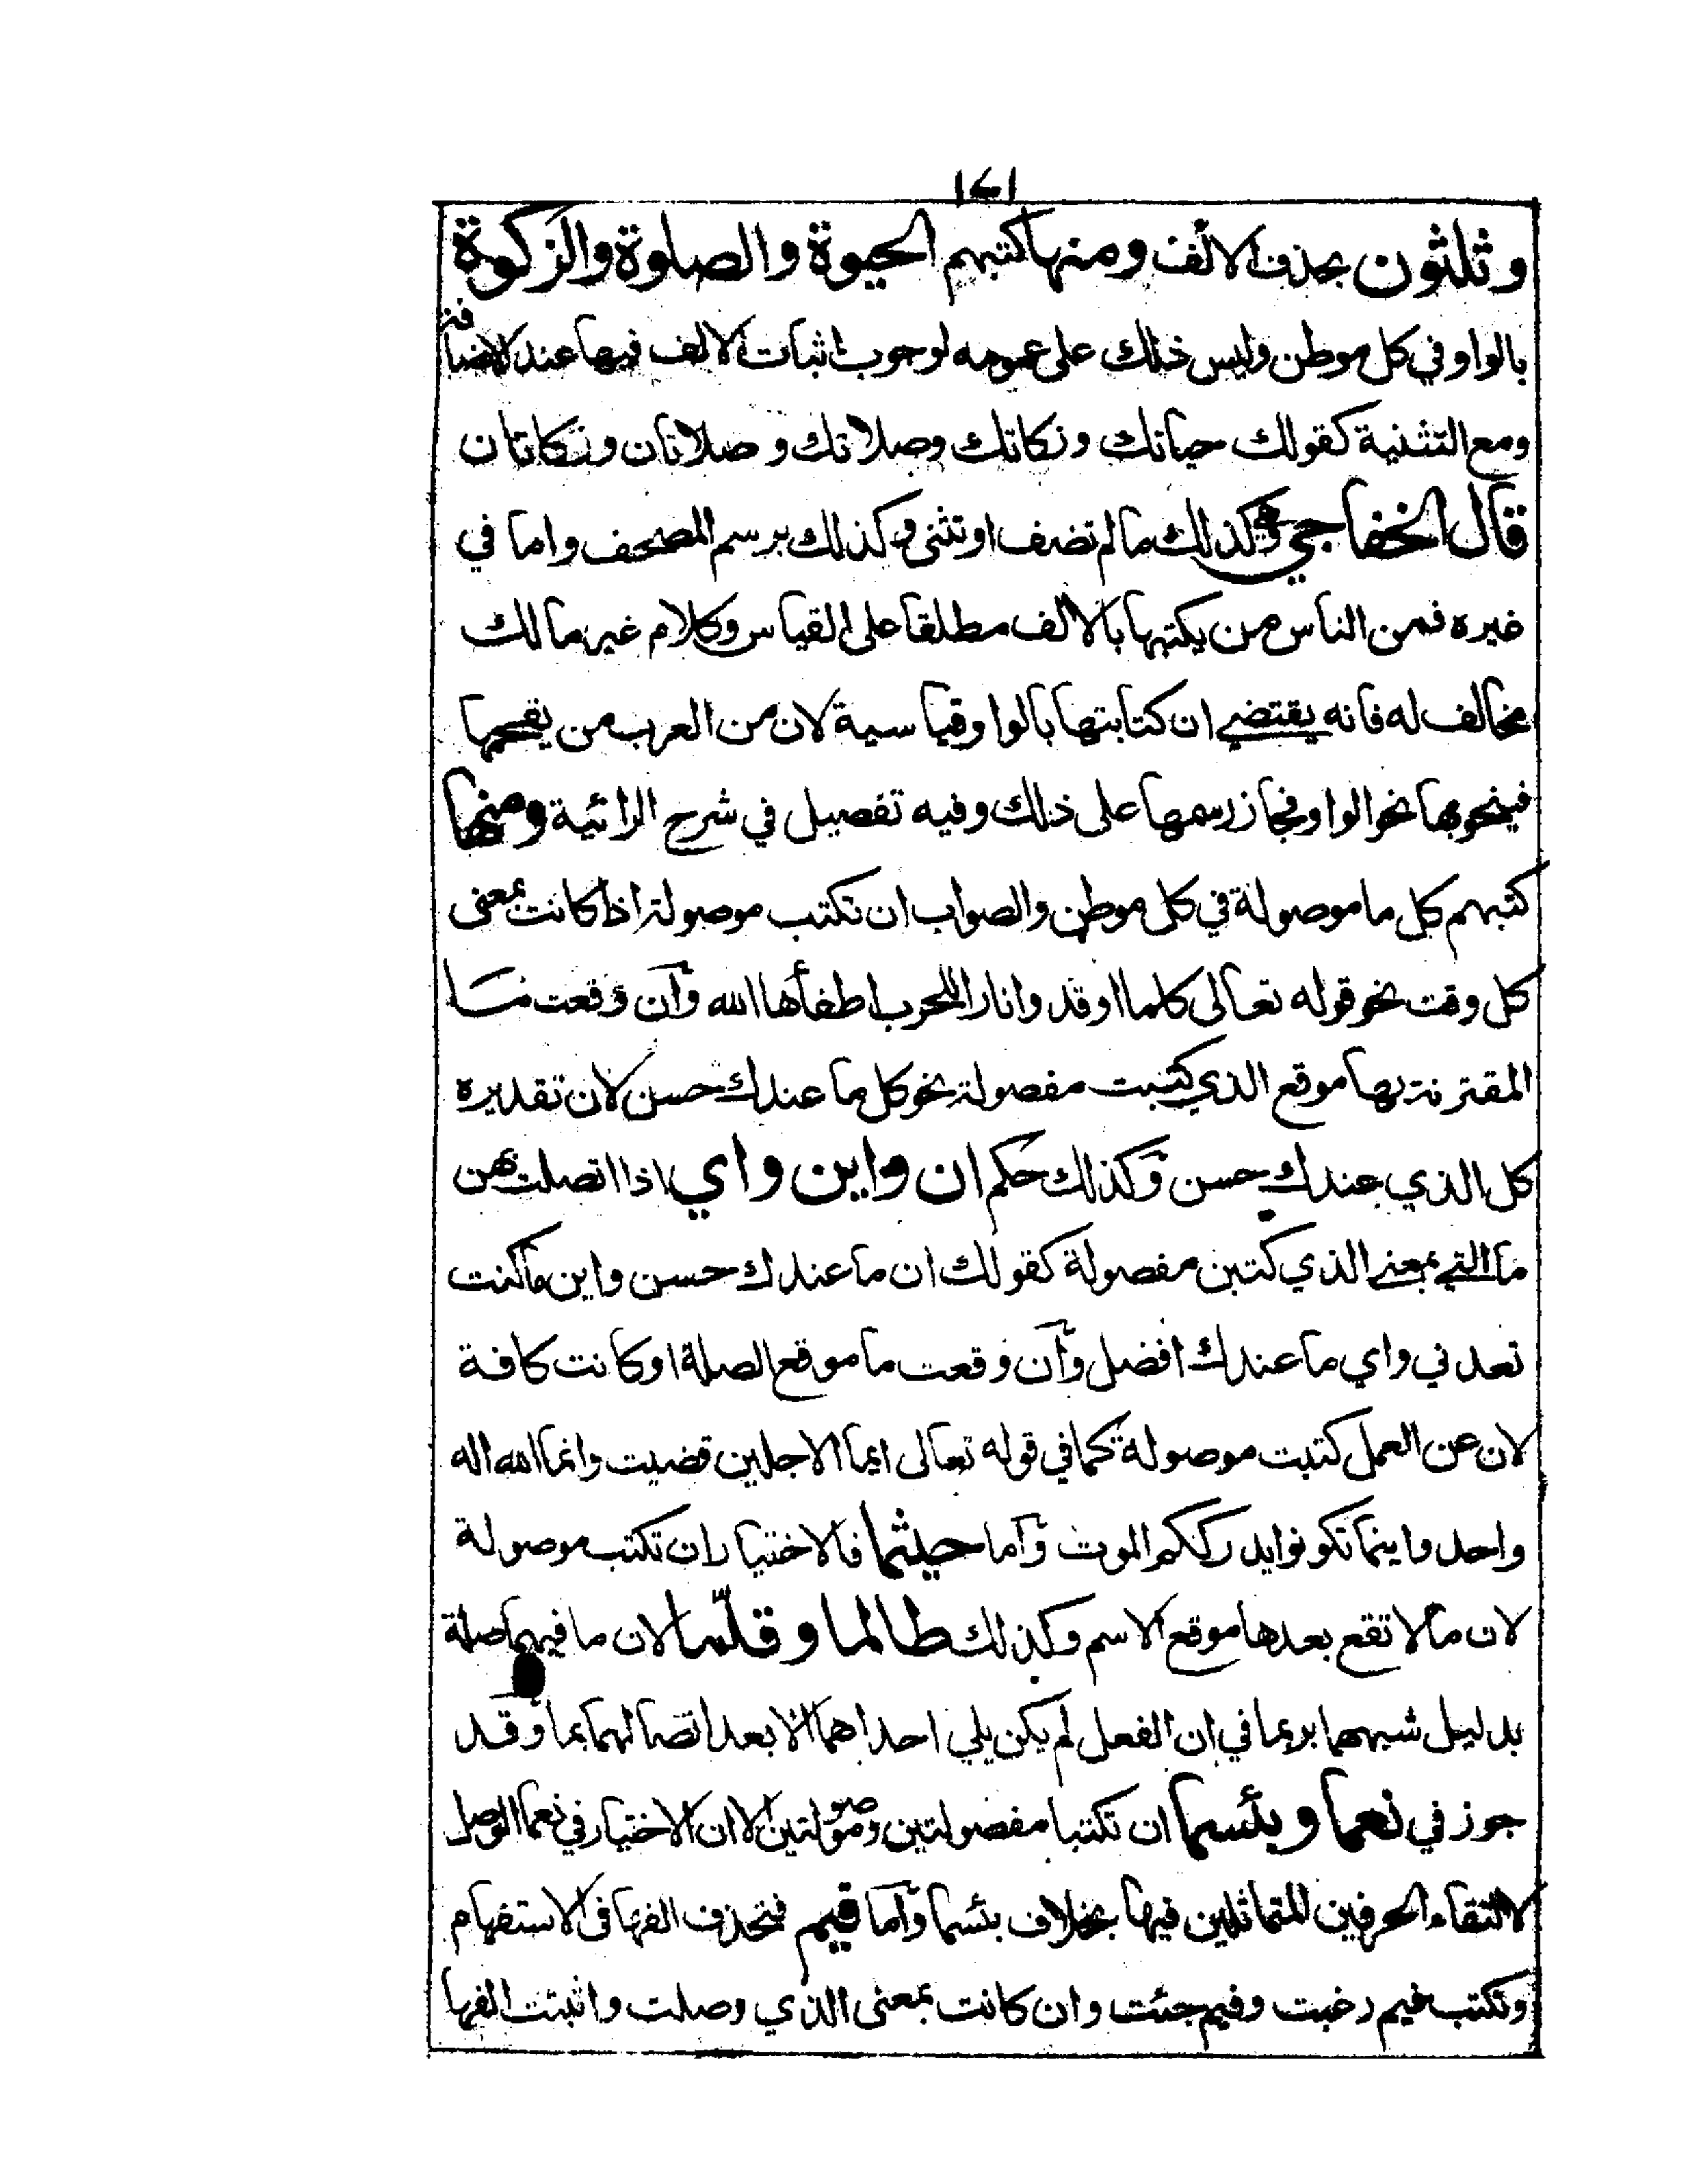 ١٢١
وثلثون بحذف الالف ومنها كتبهم الحيوة والصلوة والزكوة
بالواو في كل موطن وليس ذلك على عمومه لوجوب اثبات الالف فيها عند الاضافة
ومع التثنية كقولك حياتك وزكاتك وصلاتك وصلاتان وزكاتان
قال الخفاجي وكذلك ما لم تضف او تثنى وكذلك برسم المصحف واما في
غيره فمن الناس من يكتبها بالالف مطلقا على القياس وكلام غير مالك
مخالف له فانه يقتضي ان كتابتها بالواو قياسية لان من العرب من يفخمها
فينحو بها نحو الواو فجاز رسمها على ذلك وفيه تفصيل في شرح الرائية ومنها
كتبهم كل ما موصولة في كل موطن والصواب ان تكتب موصولة اذا كانت بمعنى
كل وقت نحو قوله تعالى كلما اوقدوا نارا للحرب اطفأها الله وان وقعت ما
المقترنة بها موقع الذي كتبت مفصولة نحو كل ما عندك حسن لان تقديره
كل الذي عندك حسن وكذلك حكم ان واين واي اذا اتصلت بهن
ما التي بمعنى الذي كتبن مفصولة كقولك ان ما عندك حسن واين ما كنت
تعدني واي ما عندك افضل وان وقعت ما موقع الصلة او كانت كافة
لان عن العمل كتبت موصولة كما في قوله تعالى ايما الاجلين قضيت وانما الله اله
واحد واينما تكونوا يدرككم الموت واما حيثما فالاختيار ان تكتب موصولة
لان ما لا تقع بعدها موقع الاسم وكذلك طالما وقلّما لان ما فيهما صلة
بدليل شبههما بربما في ان الفعل لم يكن يلي احداهما الا بعد اتصالهما بما وقد
جوز في نعما وبئسما ان تكتبا مفصولتين وموصولتين الا ان الاختيار في نعما الوصل
لالتقاء الحرفين المتماثلين فيها بخلاف بئسما واما فيم فتحذف الفها في الاستفهام
وتكتب فيم رغبت وفيم جئت وان كانت بمعنى الذي وصلت واثبتت الفها